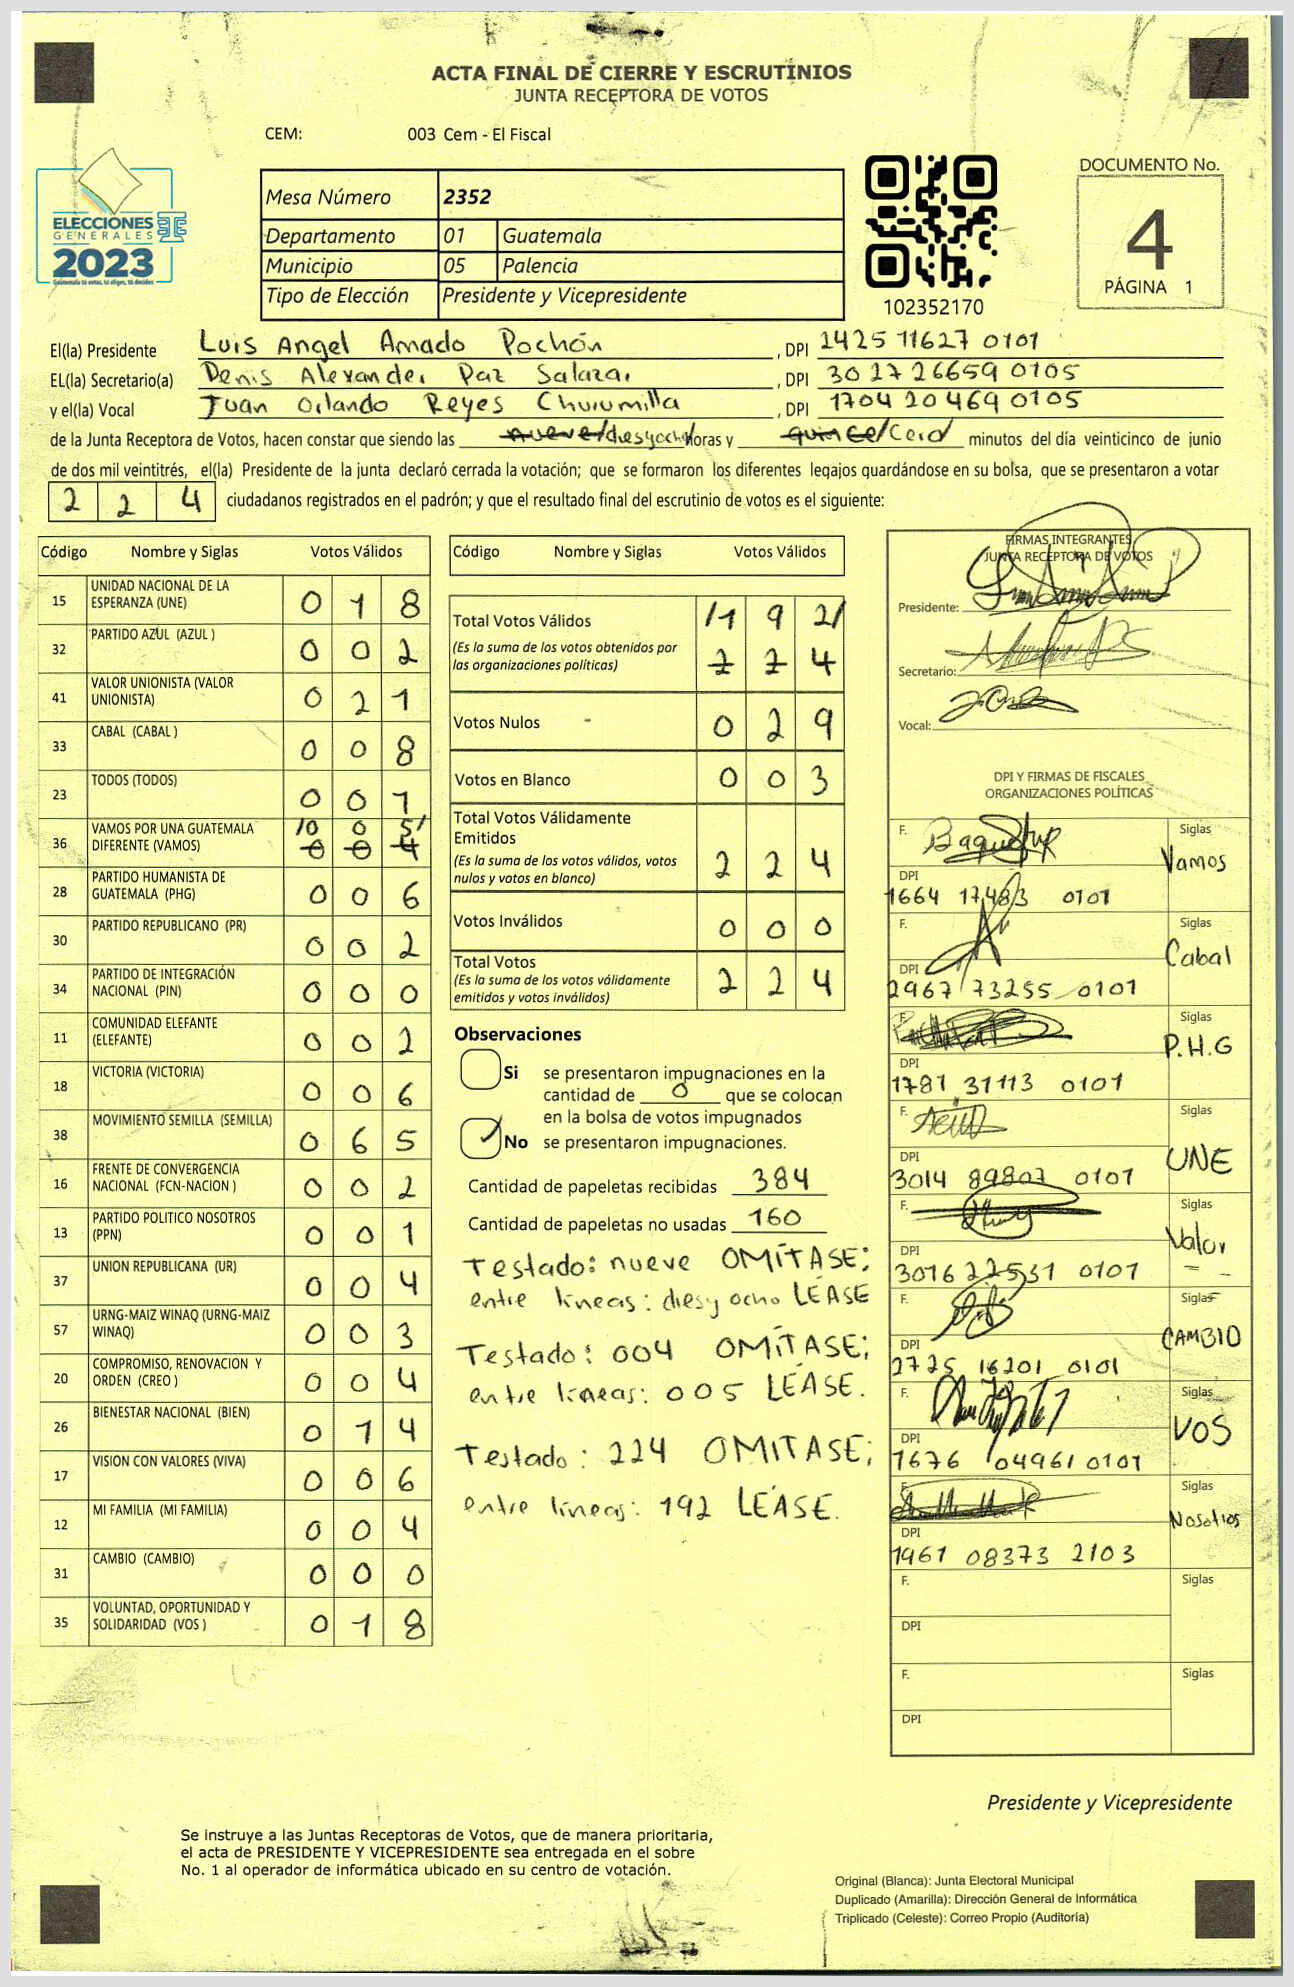 ACTA FINAL DE CIERRE Y ESCRUTINIOS
JUNTA RECEPTORA DE VOTOS
CEM: 003 Cem - El Fiscal
ELECCIONES
GENERALES
2023
Mesa Número 2352
Departamento 01 Guatemala
Municipio 05 Palencia
Tipo de Elección Presidente y Vicepresidente
102352170
DOCUMENTO No.
4
PÁGINA 1
El(la) Presidente Luis Angel Amado Pochón , DPI 2425 11627 0101
EL(la) Secretario(a) Denis Alexander Paz Salazar , DPI 30 27 26659 0105
y el(la) Vocal Juan Orlando Reyes Churumilla , DPI 1704 20 469 0105
de la Junta Receptora de Votos, hacen constar que siendo las nueve/diesyocho/ horas y quince/cero/ minutos del día veinticinco de junio
de dos mil veintitrés, el(la) Presidente de la junta declaró cerrada la votación; que se formaron los diferentes legajos guardándose en su bolsa, que se presentaron a votar
2 2 4 ciudadanos registrados en el padrón; y que el resultado final del escrutinio de votos es el siguiente:
Código Nombre y Siglas Votos Válidos
15 UNIDAD NACIONAL DE LA ESPERANZA (UNE) 0 1 8
32 PARTIDO AZUL (AZUL ) 0 0 2
41 VALOR UNIONISTA (VALOR UNIONISTA) 0 2 1
33 CABAL (CABAL ) 0 0 8
23 TODOS (TODOS) 0 0 1
36 VAMOS POR UNA GUATEMALA DIFERENTE (VAMOS) /0 0 5/ 0 0 4
28 PARTIDO HUMANISTA DE GUATEMALA (PHG) 0 0 6
30 PARTIDO REPUBLICANO (PR) 0 0 2
34 PARTIDO DE INTEGRACIÓN NACIONAL (PIN) 0 0 0
11 COMUNIDAD ELEFANTE (ELEFANTE) 0 0 2
18 VICTORIA (VICTORIA) 0 0 6
38 MOVIMIENTO SEMILLA (SEMILLA) 0 6 5
16 FRENTE DE CONVERGENCIA NACIONAL (FCN-NACION ) 0 0 2
13 PARTIDO POLITICO NOSOTROS (PPN) 0 0 1
37 UNION REPUBLICANA (UR) 0 0 4
57 URNG-MAIZ WINAQ (URNG-MAIZ WINAQ) 0 0 3
20 COMPROMISO, RENOVACION Y ORDEN (CREO ) 0 0 4
26 BIENESTAR NACIONAL (BIEN) 0 1 4
17 VISION CON VALORES (VIVA) 0 0 6
12 MI FAMILIA (MI FAMILIA) 0 0 4
31 CAMBIO (CAMBIO) 0 0 0
35 VOLUNTAD, OPORTUNIDAD Y SOLIDARIDAD (VOS ) 0 1 8
Código Nombre y Siglas Votos Válidos
Total Votos Válidos /1 9 2/
(Es la suma de los votos obtenidos por las organizaciones políticas) 2 2 4
Votos Nulos 0 2 9
Votos en Blanco 0 0 3
Total Votos Válidamente Emitidos
(Es la suma de los votos válidos, votos nulos y votos en blanco) 2 2 4
Votos Inválidos 0 0 0
Total Votos
(Es la suma de los votos válidamente emitidos y votos inválidos) 2 2 4
Observaciones
Si se presentaron impugnaciones en la
cantidad de 0 que se colocan
en la bolsa de votos impugnados
No se presentaron impugnaciones.
Cantidad de papeletas recibidas 384
Cantidad de papeletas no usadas 160
Testado: nueve OMÍTASE;
entre líneas: diesyocho LÉASE
Testado: 004 OMÍTASE;
entre líneas: 005 LÉASE.
Testado: 224 OMITASE;
entre líneas: 192 LÉASE.
FIRMAS INTEGRANTES
JUNTA RECEPTORA DE VOTOS
Presidente:
Secretario:
Vocal:
DPI Y FIRMAS DE FISCALES
ORGANIZACIONES POLÍTICAS
F. Siglas Vamos
DPI 1664 17483 0101
F. Siglas Cabal
DPI 2967 73255 0101
F. Siglas P.H.G
DPI 1781 31113 0101
F. Siglas UNE
DPI 3014 89807 0101
F. Siglas Valor
DPI 3016 22531 0101
F. Siglas CAMBIO
DPI 2725 16201 0101
F. Siglas VOS
DPI 1676 04961 0101
F. Siglas Nosotros
DPI 1961 08373 2103
F. Siglas
DPI
F. Siglas
DPI
Presidente y Vicepresidente
Se instruye a las Juntas Receptoras de Votos, que de manera prioritaria,
el acta de PRESIDENTE Y VICEPRESIDENTE sea entregada en el sobre
No. 1 al operador de informática ubicado en su centro de votación.
Original (Blanca): Junta Electoral Municipal
Duplicado (Amarilla): Dirección General de Informática
Triplicado (Celeste): Correo Propio (Auditoría)